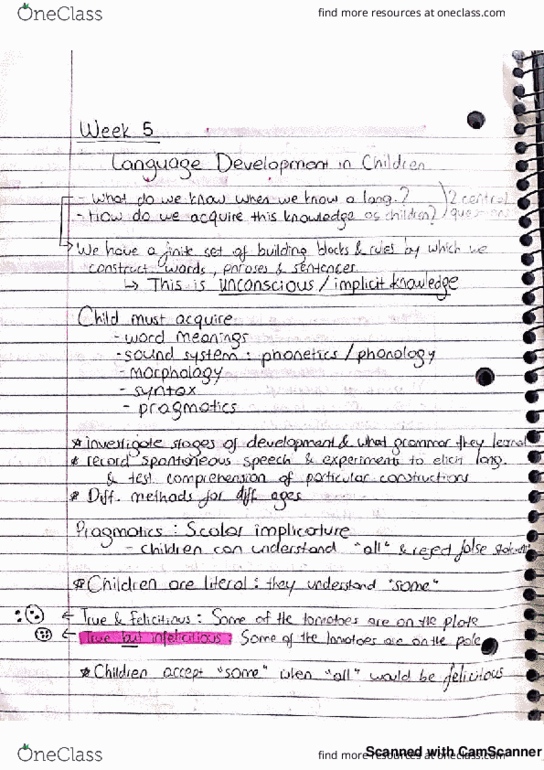 OneClass
find more resources at oneclass.com
Week 5
Language Development in Children
- What do we know when we know a lang.? 2 central
- How do we acquire this knowledge as children? questions
We have a finite set of building blocks & rules by which we
construct words, phrases & sentences
↳ This is unconscious / implicit knowledge
Child must acquire
- word meanings
- sound system : phonetics / phonology
- morphology
- syntax
- pragmatics
* investigate stages of development & what grammar they learn
* record spontaneous speech & experiments to elicit lang.
& test comprehension of particular constructions
* Diff. methods for diff ages
Pragmatics : Scalar implicature
- children can understand "all" & reject false
* Children are literal : they understand "some"
← True & Felicitious : Some of the tomatoes are on the plate
← True but infelicitious : Some of the tomatoes are on the
* Children accept "some" when "all" would be felicious
OneClass
find more resources at oneclass.com
Scanned with CamScanner